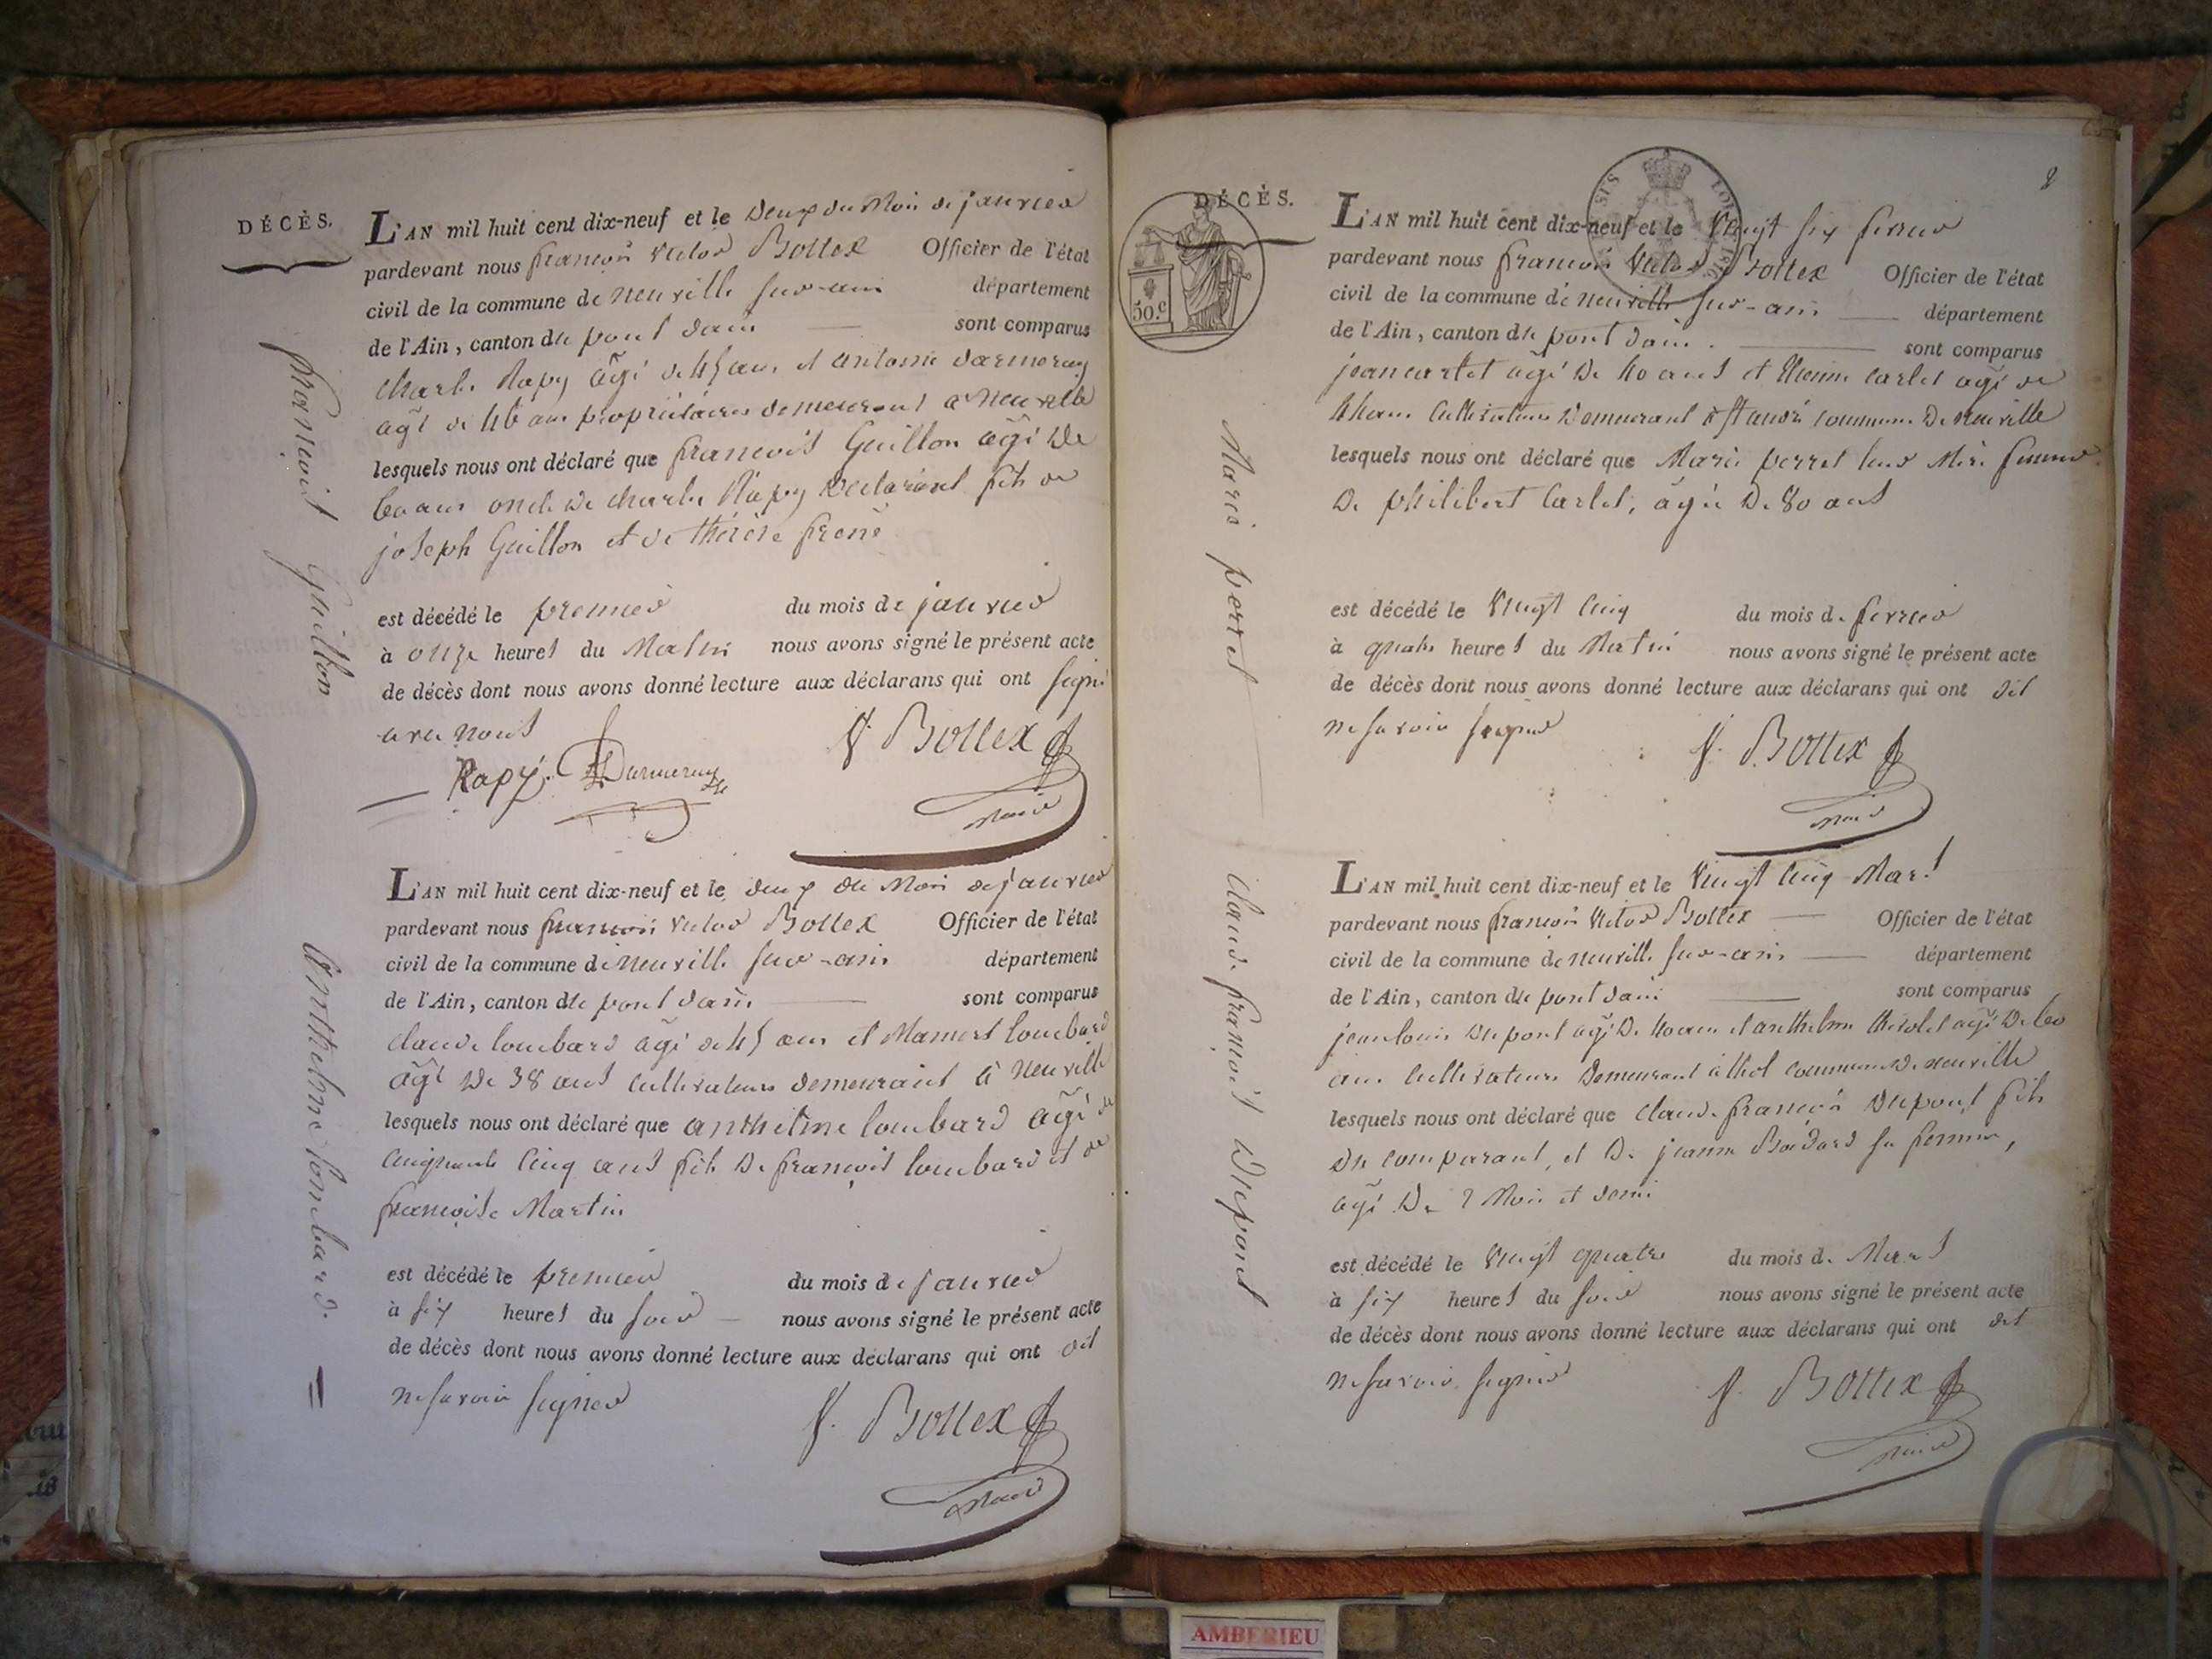 DÉCÈS.
L'AN mil huit cent dix-neuf et le deux du Mois de janvier
pardevant nous francois Victor Bottex Officier de l'état
civil de la commune de neuville sur-ain département
de l'Ain, canton de pont dain sont comparus
charle Rapy âgé de 45 ans et antoine darmeray
âgé de 46 ans propriétaires demeurant a neuville
lesquels nous ont déclaré que francois Guillon âgé de
60 ans oncle de charle Rapy declarant fils de
joseph Guillon et de thérèse
est décédé le premier du mois de janvier
à onze heures du Matin nous avons signé le présent acte
de décès dont nous avons donné lecture aux déclarans qui ont signé
avec nous V. Bottex
Rapy. Darmeray
Maire
francois Guillon
L'AN mil huit cent dix-neuf et le deux du Mois de janvier
pardevant nous francois Victor Bottex Officier de l'état
civil de la commune de neuville sur-ain département
de l'Ain, canton de pont dain sont comparus
claude lombard âgé de 45 ans et Mamert lombard
âgé de 38 ans cultivateurs demeurant à neuville
lesquels nous ont déclaré que anthelme lombard âgé de
cinquante cinq ans fils de françois lombard et de
françoise Martin
est décédé le premier du mois de janvier
à six heures du soir nous avons signé le présent acte
de décès dont nous avons donné lecture aux déclarans qui ont dit
ne savoir signer V. Bottex
Maire
Anthelme lombard.
DÉCÈS.
50.c
L'AN mil huit cent dix-neuf et le vingt six fevrier
pardevant nous francois Victor Bottex Officier de l'état
civil de la commune de neuville sur-ain département
de l'Ain, canton de pont dain. sont comparus
jean carlet agé de 40 ans et Etienne carlet agé de
ans cultivateurs demeurant a st andré commune de neuville
lesquels nous ont déclaré que Marie perret leur Mère femme
de philibert Carlet, âgée de 80 ans
est décédé le vingt cinq du mois de fevrier
à quatre heures du Matin nous avons signé le présent acte
de décès dont nous avons donné lecture aux déclarans qui ont dit
ne savoir signer V. Bottex
Maire
Marie perret
L'AN mil huit cent dix-neuf et le vingt cinq Mars
pardevant nous francois Victor Bottex Officier de l'état
civil de la commune de neuville sur-ain département
de l'Ain, canton de pont dain sont comparus
jean louis dupont agé de 40 ans et anthelme agé de 60
ans cultivateurs demeurant à thol commune de neuville
lesquels nous ont déclaré que claude françois dupont fils
du comparant, et de jeanne sa femme,
agé de 2 Mois et demi
est décédé le vingt quatre du mois de Mars
à six heures du soir nous avons signé le présent acte
de décès dont nous avons donné lecture aux déclarans qui ont dit
ne savoir signer V. Bottex
Maire
claude françois Dupont
AMBERIEU